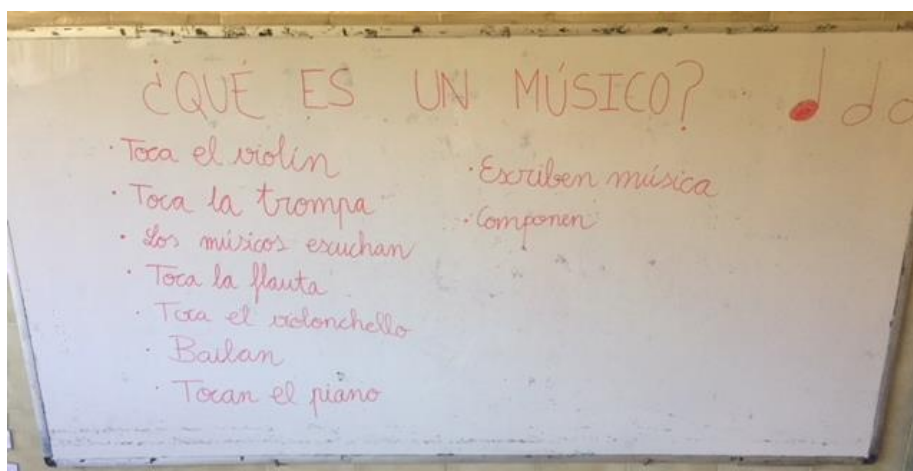 ¿QUÉ ES UN MÚSICO?
· Toca el violín
· Toca la trompa
· Los músicos escuchan
· Toca la flauta
· Toca el violonchello
· Bailan
· Tocan el piano
· Escriben música
· Componen